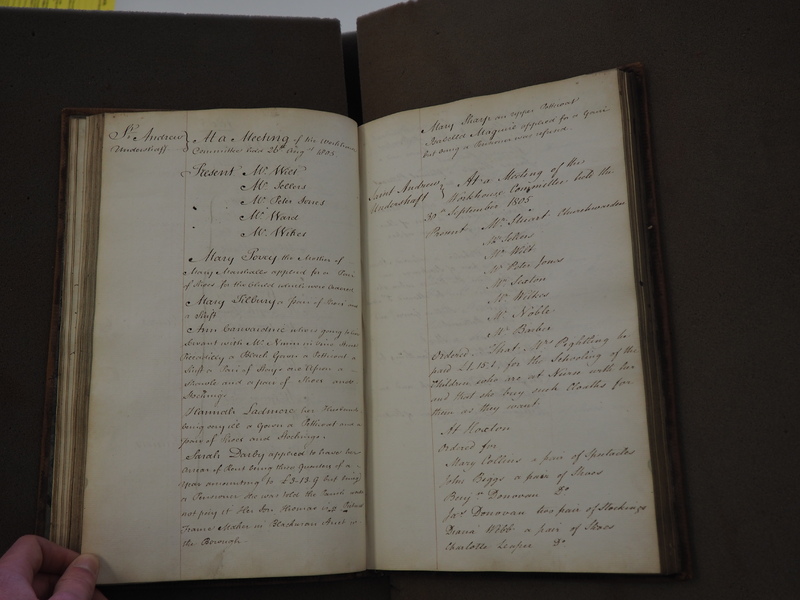 St. Andrew
Undershaft
At a Meeting of the Workhouse
Committee held 26th Augt 1805
Present Mr Wilt
Mr Sellers
Mr Peter Jones
Mr Ward
Mr Wilkes
Mary Povey the Mother of
Mary Marshall applied for a Pair
of Shoes for the Child which were
Mary Silbury a pair of and
a Shift
Ann going to
Servant with Mr in Vine Street
Piccadilly a Black Gown a Petticoat a
Shift a Pair of Stays an Apron a
Shawl and a pair of Shoes and
Stockings
Hannah her Husband
being very ill a Gown a Petticoat and a
pair of Shoes and Stockings
Sarah Darby applied to have her
arrear of Rent being three Quarters of a
year amounting to £3.13.9 but being
a Pensioner she was told the Parish would
not pay it Her Son Thomas is a Picture
Frame Maker in Blackman Street in
the Borough
Mary Sharp an upper Petticoat
Maguire applied for a Gown
but being a was refused
Saint Andrew
Undershaft
At a Meeting of the
Workhouse Committee held the
30th September 1805
Present Mr Stuart Churchwarden
Mr Sellers
Mr Wilt
Mr Peter Jones
Mr Sexton
Mr Wilkes
Mr Noble
Mr
Ordered That Mrs Peghtling be
paid for the Schooling of the
Children who are at Nurse with her
and that she buy such Cloaths for
them as they want
At Hoxton
Ordered for
Mary Collins a pair of Spectacles
John Biggs a pair of Shoes
Benjn Donovan Do
Jas Donovan two pair of Stockings
Diana Webb a pair of Shoes
Charlotte Leaper Do